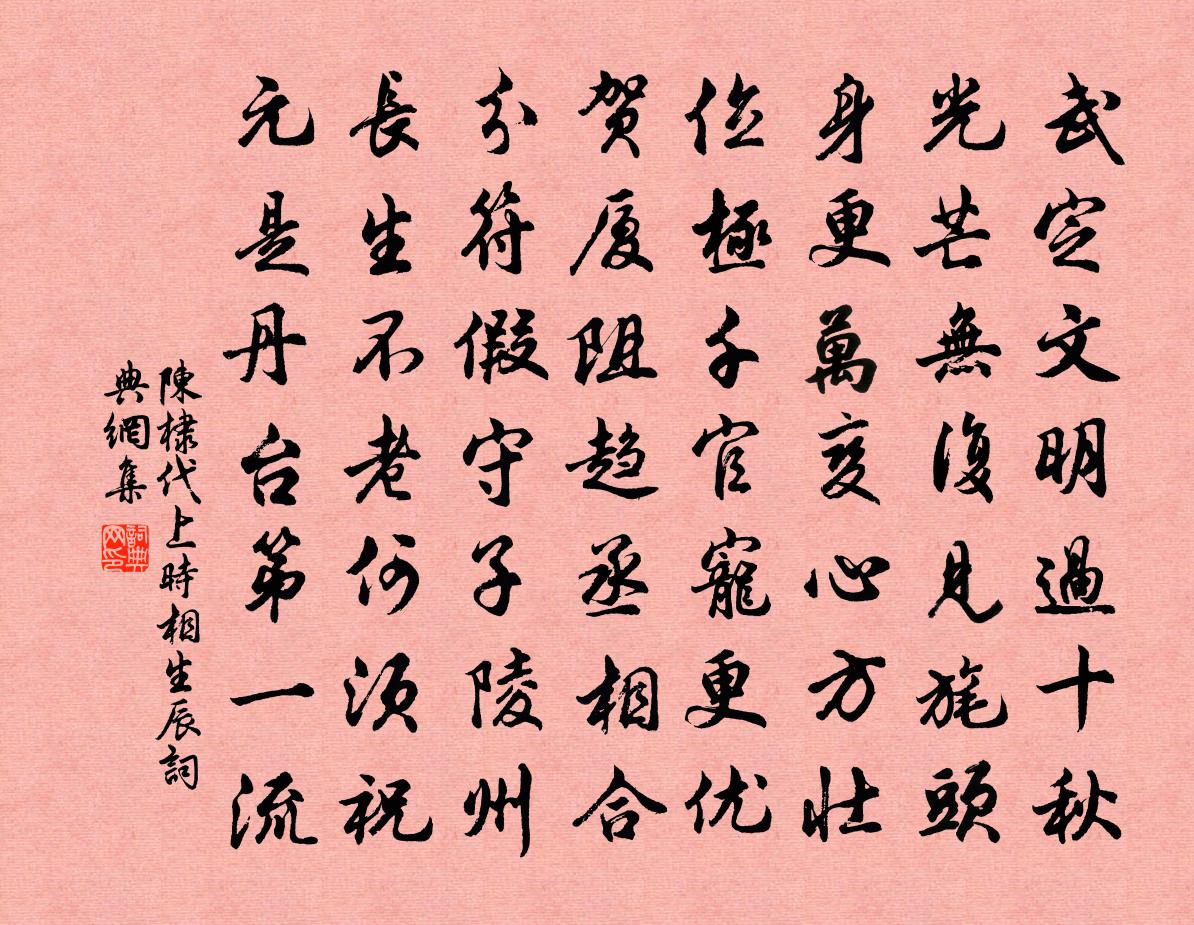 武定文明過十秋
光芒無復見旄頭
身更萬变心方壮
位極千官寵更优
贺厦阻趋丞相合
分符假守子陵州
長生不老何须祝
元是丹台第一流
陳棣代上時相生辰詞
典網集
詞典
网印